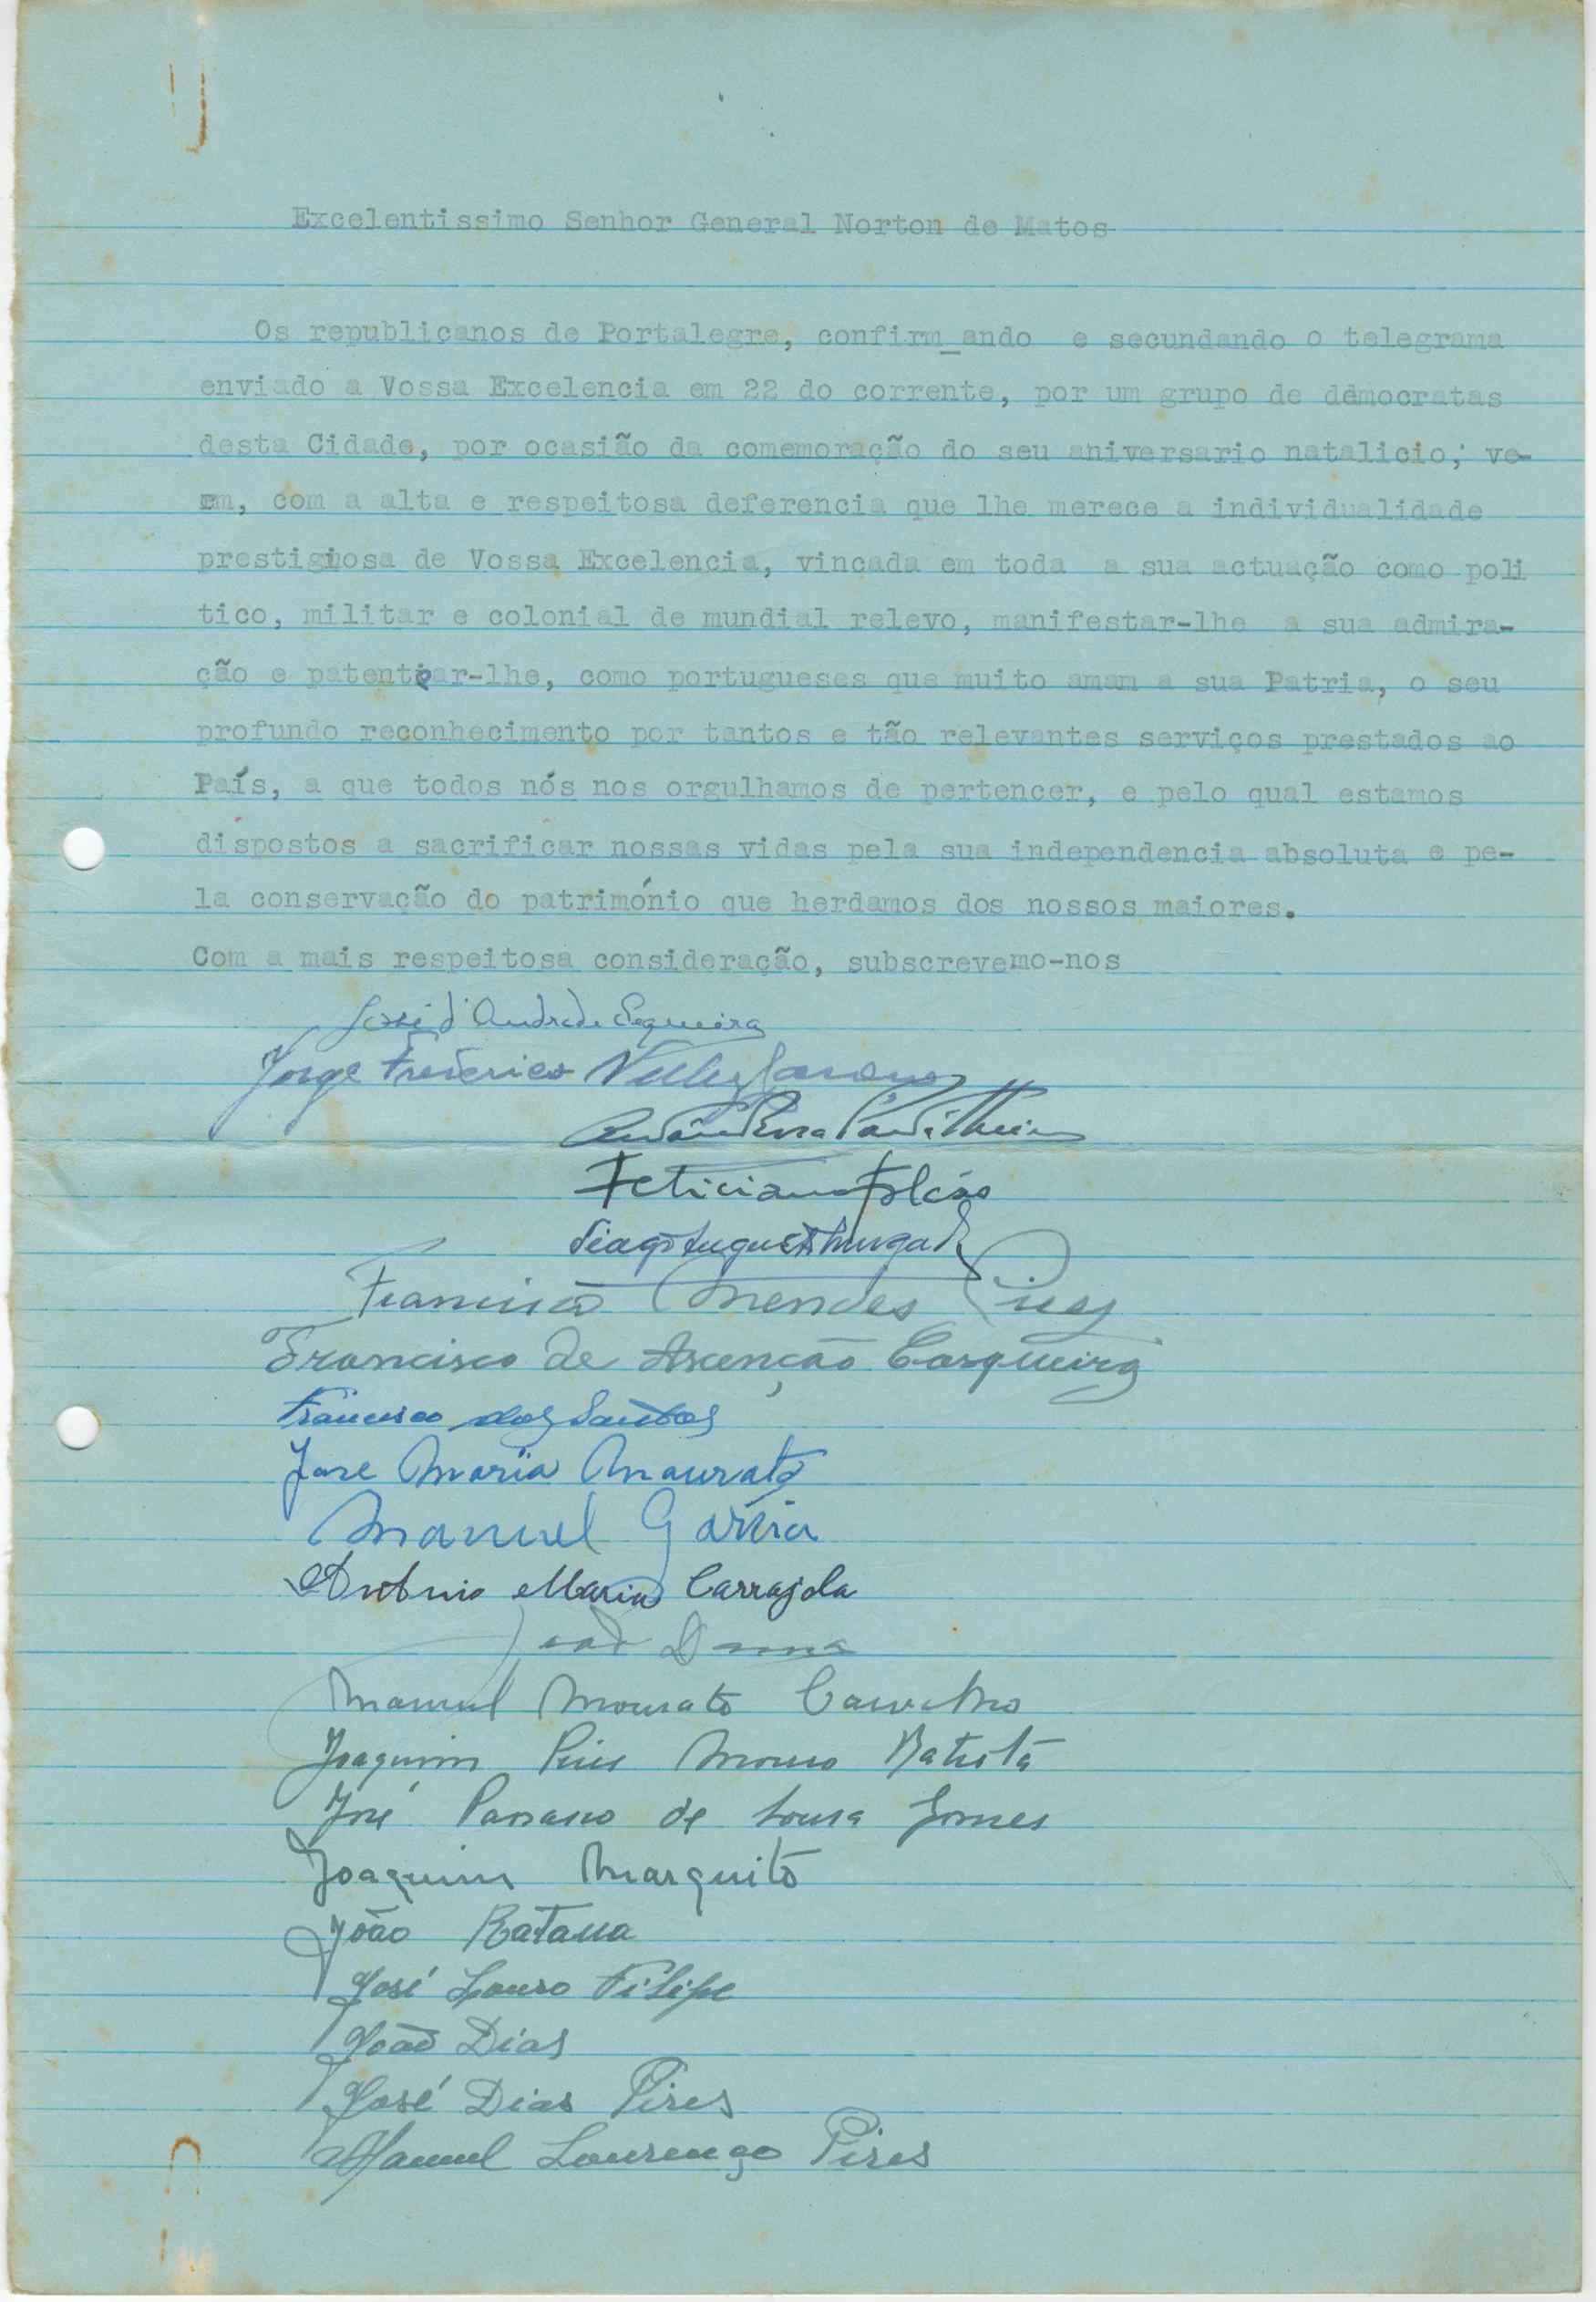 Excelentissimo Senhor General Norton de Matos
Os republicanos de Portalegre, confirm_ando e secundando o telegrama
enviado a Vossa Excelencia em 22 do corrente, por um grupo de democratas
desta Cidade, por ocasião da comemoração do seu aniversario natalicio, ve-
em, com a alta e respeitosa deferencia que lhe merece a individualidade
prestigiosa de Vossa Excelencia, vincada em toda a sua actuação como poli
tico, militar e colonial de mundial relevo, manifestar-lhe a sua admira-
ção e patentear-lhe, como portugueses que muito amam a sua Patria, o seu
profundo reconhecimento por tantos e tão relevantes serviços prestados ao
País, a que todos nós nos orgulhamos de pertencer, e pelo qual estamos
dispostos a sacrificar nossas vidas pela sua independencia absoluta e pe-
la conservação do património que herdamos dos nossos maiores.
Com a mais respeitosa consideração, subscrevemo-nos
José d'Andrade Sequeira
Jorge Frederico
Feliciano Falcão
Francisco Mendes Pires
Francisco de Ascenção Casqueira
Francisco dos Santos
Jose Maria Mourato
Manuel Garcia
António Maria Carrajola
João
Manuel Mourato Carvilho
Joaquim Batista
José de Sousa Gomes
Joaquim Marquito
João Batana
José Louro Filipe
João Dias
José Dias Pires
Manuel Lourenço Pires